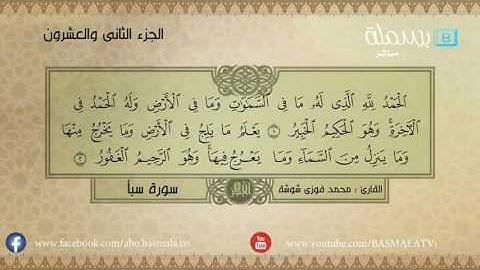 الجزء الثانى والعشرون
بسملة B
مباشر
ٱلْحَمْدُ لِلَّهِ ٱلَّذِى لَهُۥ مَا فِى ٱلسَّمَٰوَٰتِ وَمَا فِى ٱلْأَرْضِ وَلَهُ ٱلْحَمْدُ فِى
ٱلْءَاخِرَةِ ۚ وَهُوَ ٱلْحَكِيمُ ٱلْخَبِيرُ ١ يَعْلَمُ مَا يَلِجُ فِى ٱلْأَرْضِ وَمَا يَخْرُجُ مِنْهَا
وَمَا يَنزِلُ مِنَ ٱلسَّمَآءِ وَمَا يَعْرُجُ فِيهَا ۚ وَهُوَ ٱلرَّحِيمُ ٱلْغَفُورُ ٢
القارئ : محمد فوزى شوشة
سورة سبأ
www.facebook.com/abo.basmala.tv
www.youtube.com/BASMALATV1